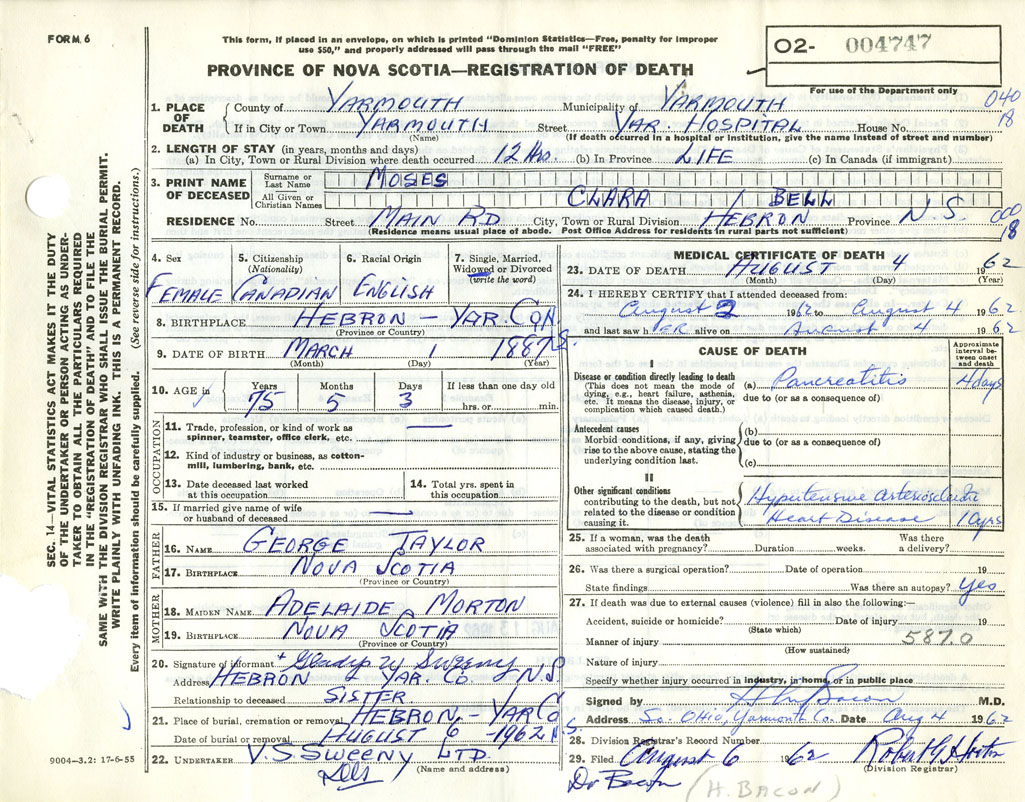 FORM 6
This form, if placed in an envelope, on which is printed "Dominion Statistics—Free, penalty for improper
use $50," and properly addressed will pass through the mail "FREE"
02- 004747
PROVINCE OF NOVA SCOTIA—REGISTRATION OF DEATH
For use of the Department only
SEC. 14—VITAL STATISTICS ACT MAKES IT THE DUTY
OF THE UNDERTAKER OR PERSON ACTING AS UNDER-
TAKER TO OBTAIN ALL THE PARTICULARS REQUIRED
IN THE "REGISTRATION OF DEATH" AND TO FILE THE
SAME WITH THE DIVISION REGISTRAR WHO SHALL ISSUE THE BURIAL PERMIT.
WRITE PLAINLY WITH UNFADING INK. THIS IS A PERMANENT RECORD.
Every item of information should be carefully supplied. (See reverse side for instructions.)
1. PLACE OF DEATH County of YARMOUTH Municipality of YARMOUTH 040
If in City or Town YARMOUTH Street YAR. HOSPITAL House No. 18
(Name) (If death occurred in a hospital or institution, give the name instead of street and number)
2. LENGTH OF STAY (in years, months and days)
(a) In City, Town or Rural Division where death occurred 12 Hrs. (b) In Province LIFE (c) In Canada (if immigrant)
3. PRINT NAME OF DECEASED Surname or Last Name MOSES
All Given or Christian Names CLARA / BELL
RESIDENCE No. Street MAIN RD City, Town or Rural Division HEBRON Province N.S. 000
(Residence means usual place of abode. Post Office Address for residents in rural parts not sufficient) 18
4. Sex 5. Citizenship (Nationality) 6. Racial Origin 7. Single, Married, Widowed or Divorced (write the word)
FEMALE CANADIAN ENGLISH
8. BIRTHPLACE HEBRON - YAR. CO N.S.
(Province or Country)
9. DATE OF BIRTH MARCH 1 1887
(Month) (Day) (Year)
10. AGE in Years Months Days If less than one day old
75 5 3 hrs. or min.
OCCUPATION
11. Trade, profession, or kind of work as
spinner, teamster, office clerk, etc. —
12. Kind of industry or business, as cotton-
mill, lumbering, bank, etc.
13. Date deceased last worked at this occupation 14. Total yrs. spent in this occupation
15. If married give name of wife
or husband of deceased —
FATHER
16. NAME GEORGE TAYLOR
17. BIRTHPLACE NOVA SCOTIA
(Province or Country)
MOTHER
18. MAIDEN NAME ADELAIDE MORTON
19. BIRTHPLACE NOVA SCOTIA
(Province or Country)
20. Signature of informant + Gladys M Sweeny
Address HEBRON YAR. CO. N.S.
Relationship to deceased SISTER
21. Place of burial, cremation or removal HEBRON - YAR CO
Date of burial or removal AUGUST 6 - 1962 N.S.
22. UNDERTAKER V.S. SWEENY LTD.
(Name and address)
9004—3.2: 17-6-55
MEDICAL CERTIFICATE OF DEATH
23. DATE OF DEATH AUGUST 4 1962
(Month) (Day) (Year)
24. I HEREBY CERTIFY that I attended deceased from:
August 2 1962 to August 4 1962
and last saw h ER alive on August 4 1962
CAUSE OF DEATH
Approximate interval between onset and death
I
Disease or condition directly leading to death
(This does not mean the mode of
dying, e.g., heart failure, asthenia,
etc. It means the disease, injury, or
complication which caused death.)
(a) Pancreatitis 4 days
due to (or as a consequence of)
Antecedent causes
Morbid conditions, if any, giving
rise to the above cause, stating the
underlying condition last.
(b)
due to (or as a consequence of)
(c)
II
Other significant conditions
contributing to the death, but not
related to the disease or condition
causing it.
Hypertensive arteriosclerotic
Heart Disease 10 yrs
25. If a woman, was the death Was there
associated with pregnancy? Duration weeks. a delivery?
26. Was there a surgical operation? Date of operation 19
State findings Was there an autopsy? Yes
27. If death was due to external causes (violence) fill in also the following:—
Accident, suicide or homicide? Date of injury 19
(State which)
Manner of injury 587.0
(How sustained)
Nature of injury
Specify whether injury occurred in industry, in home, or in public place
Signed by H Bacon M.D.
Address So. OHIO, Yarmouth Co. Date Aug 4 1962
28. Division Registrar's Record Number
29. Filed August 6 1962 Robert G
(Division Registrar)
Dr Bacon (H. BACON)